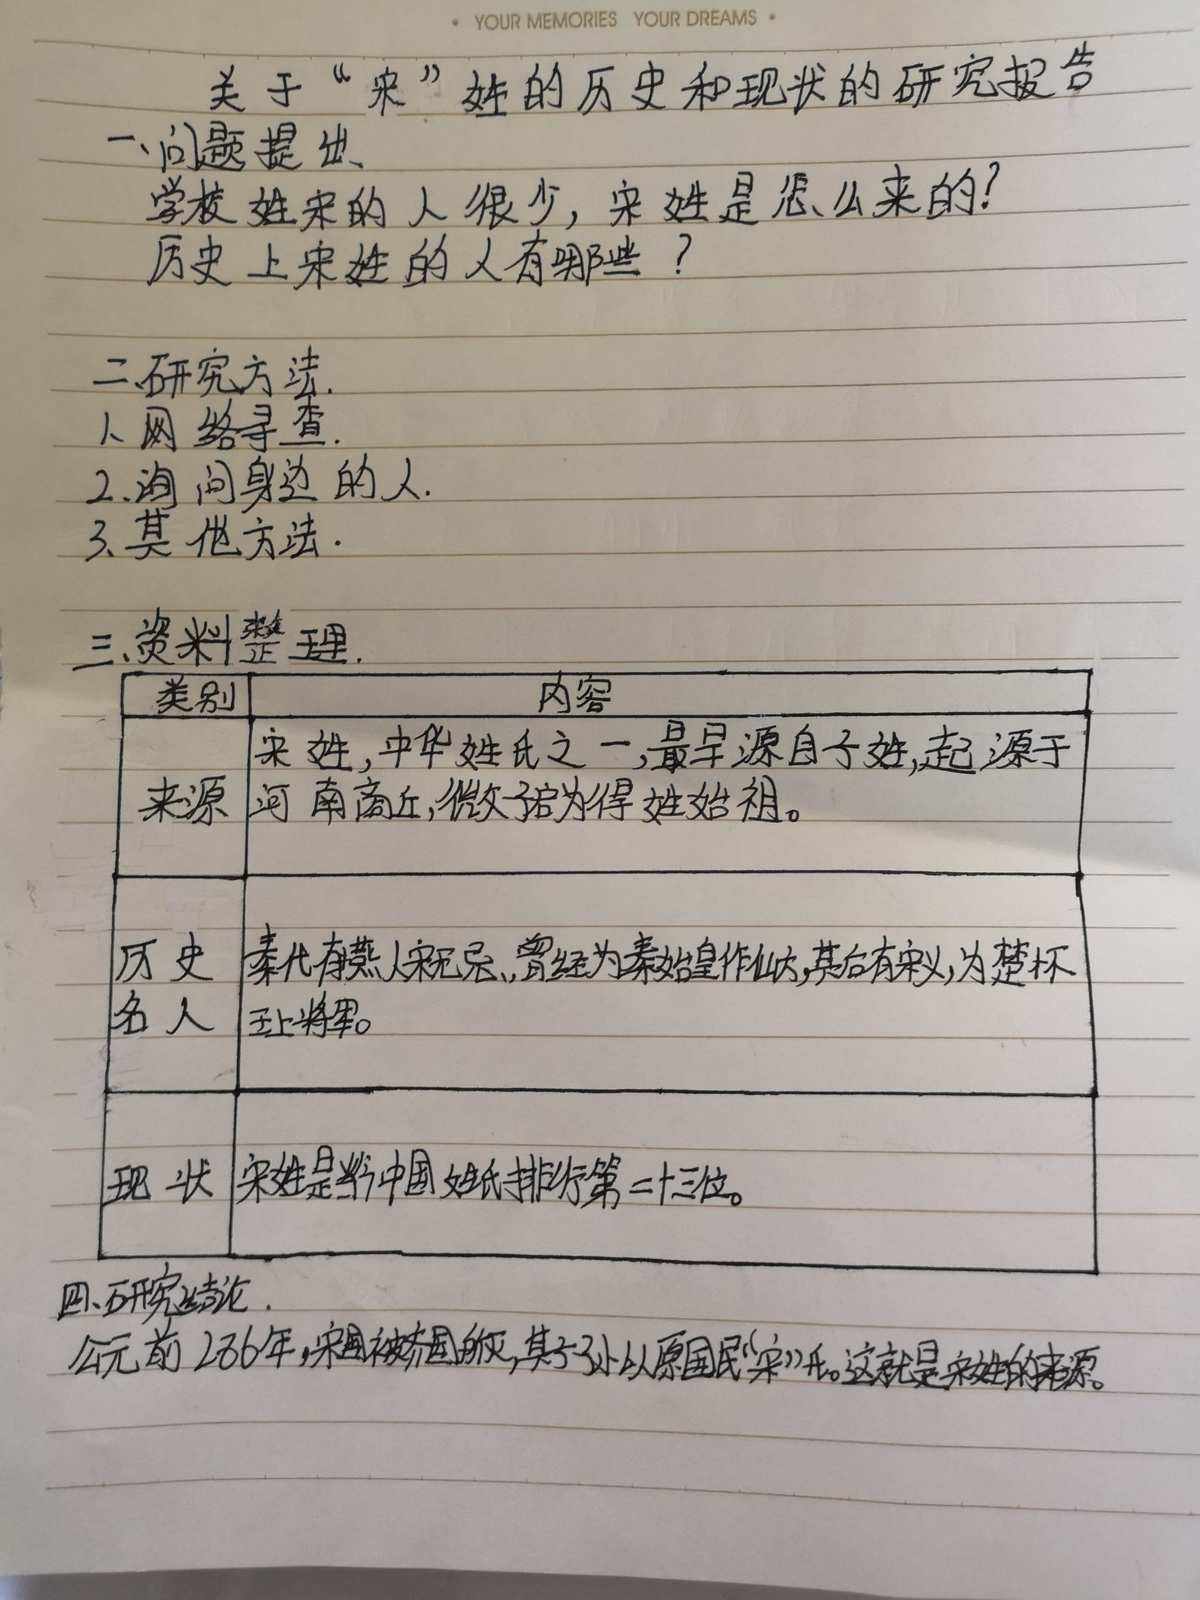 • YOUR MEMORIES YOUR DREAMS •
关于“宋”姓的历史和现状的研究报告
一、问题提出、
学校姓宋的人很少，宋姓是怎么来的？
历史上宋姓的人有哪些？
二、研究方法.
1、网络寻查.
2、询问身边的人.
3、其他方法.
三、资料整理.
类别 内容
宋姓，中华姓氏之一，最早源自子姓，起源于
来源 河南商丘，微子启为得姓始祖。
历史 秦代有燕人宋无忌、曾经为秦始皇作仙，其后有宋义，为楚怀
名人 王上将军。
现状 宋姓是当今中国姓氏排行第二十三位。
四、研究结论.
公元前286年，宋国被齐国所灭，其子孙以原国民“宋”氏。这就是宋姓的来源。